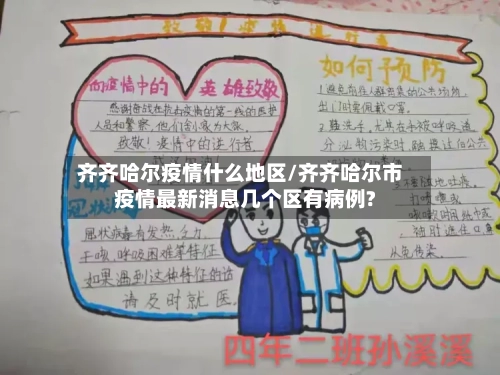 致敬！疫情逆行者
向疫情中的英雄致敬
感谢奋战在抗击疫情的第一线的医护
人员和警察，他们刻
致敬！疫情中的逆行者
如何预防
1.避免前往人群密集的公共场所，
出门时要佩戴口罩。
2.勤洗手，尤其在手被呼吸道
分泌物污染时
齐齐哈尔疫情什么地区/齐齐哈尔市
疫情最新消息几个区有病例?
随地吐痰，
打喷嚏或
从免传染。
冠状病毒有发热、乏力
干咳、呼吸困难等特征
如果遇到这种特征的话
请及时就医。
四年二班孙溪溪